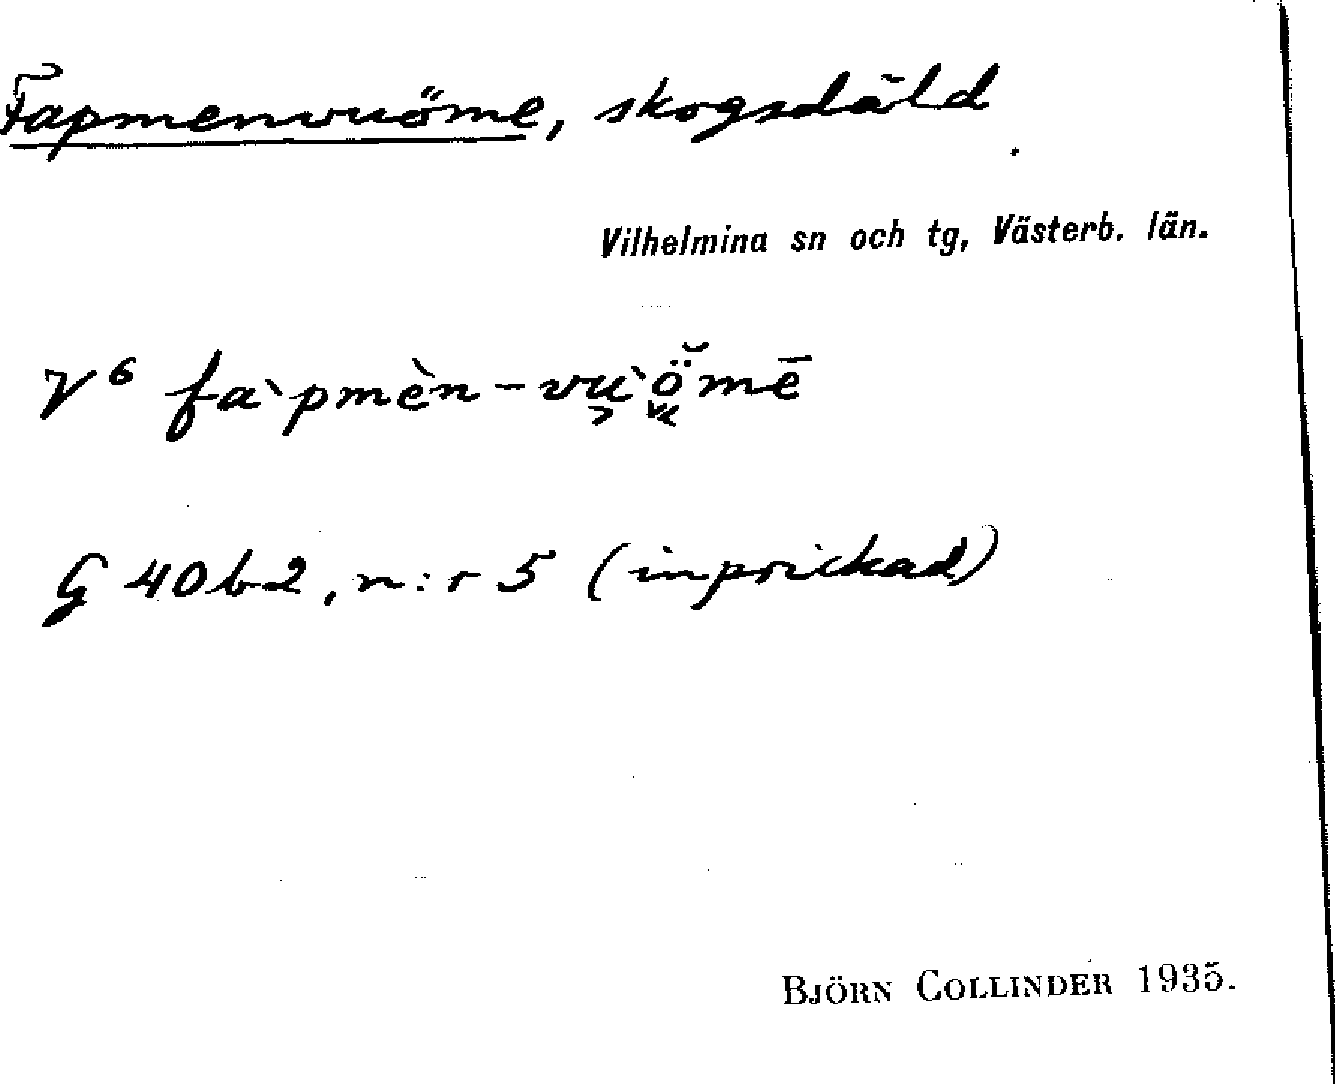 Fapmenvuöme, skogsdäld.
Vilhelmina sn och tg, Västerb. län.
V⁶ fa`pmèn-vu̡`ö̆mē
G 40 b 2, n:r 5 (inprickad)
BJÖRN COLLINDER 1935.